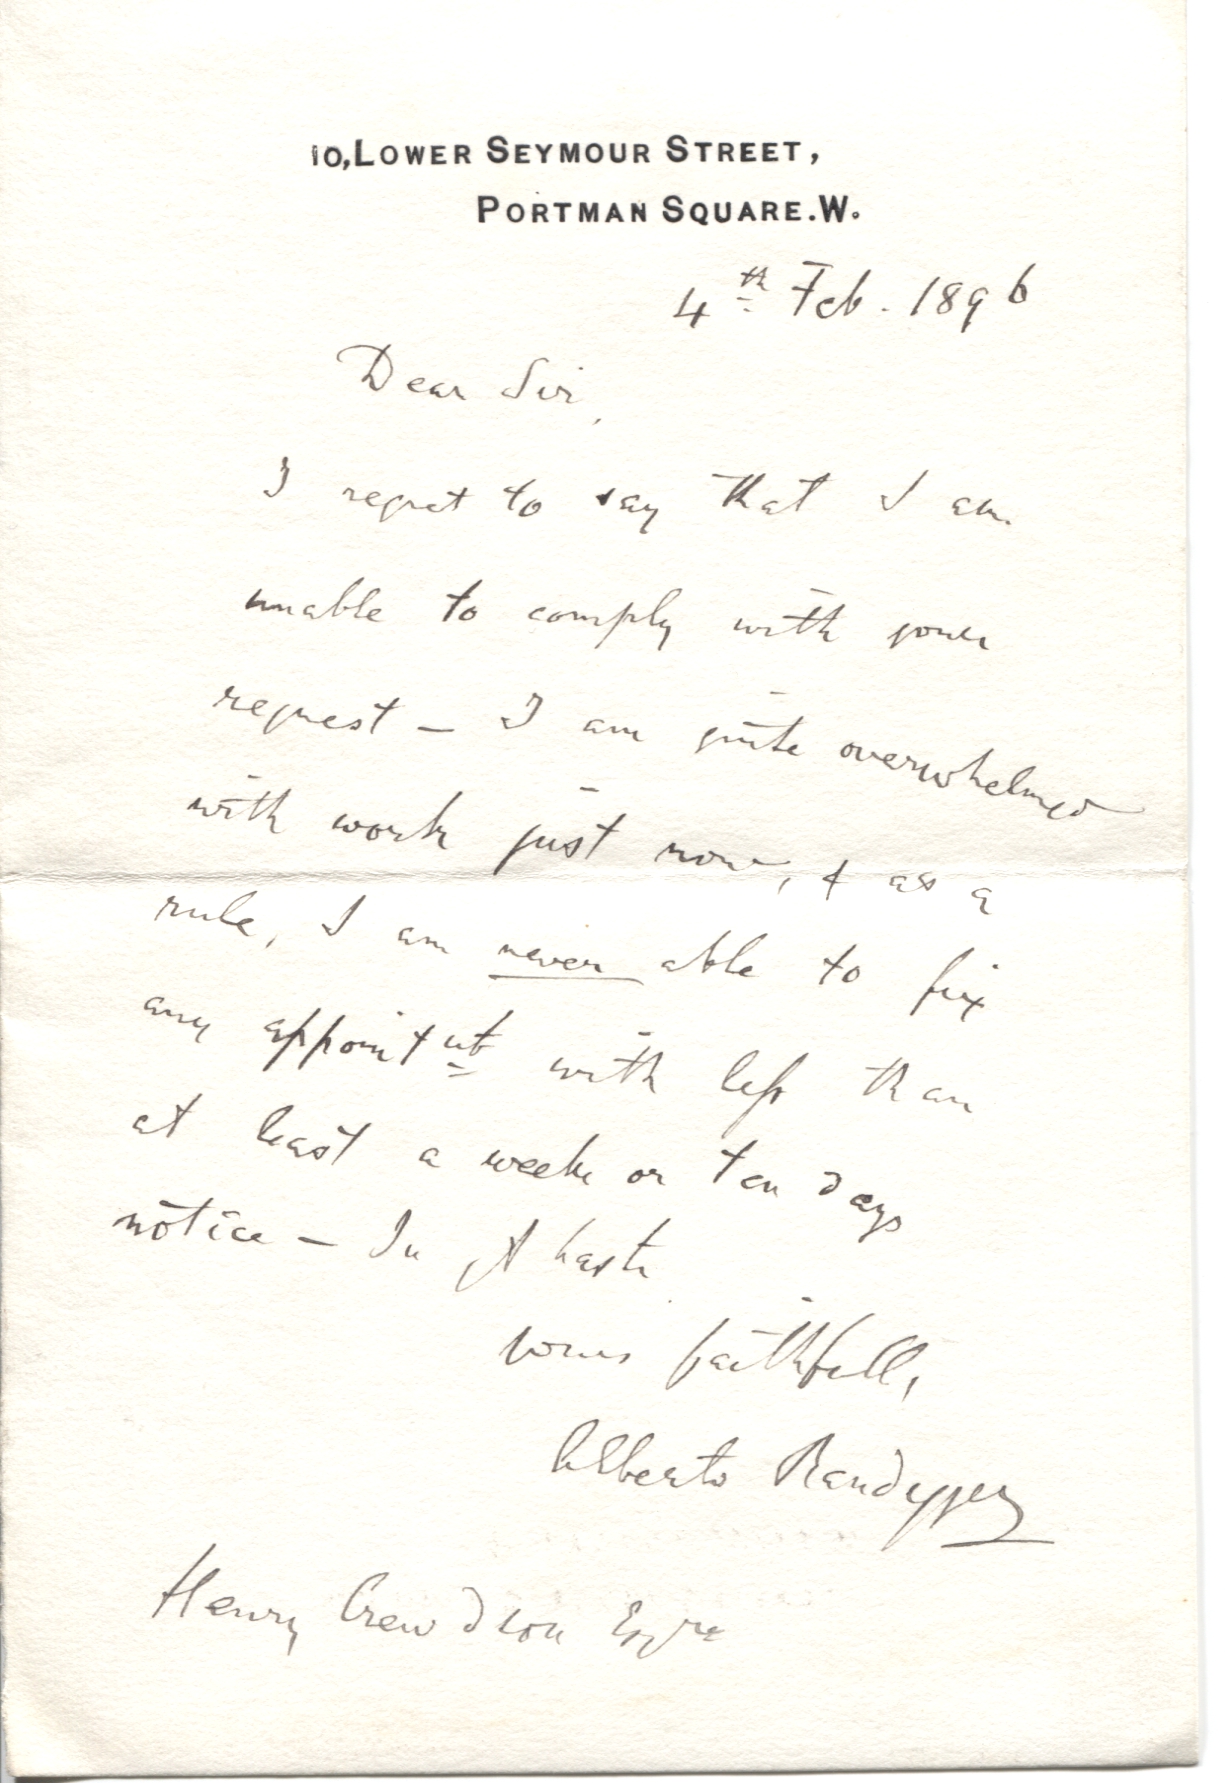 10, LOWER SEYMOUR STREET,
PORTMAN SQUARE. W.
4th Feb. 1896
Dear Sir,
I regret to say that I am
unable to comply with your
request – I am quite overwhelmed
with work just now, & as a
rule, I am never able to fix
any appointnt with less than
at least a week or ten days
notice – In gt haste
yours faithfully,
Alberto Randegger
Henry Crewdson Esqre